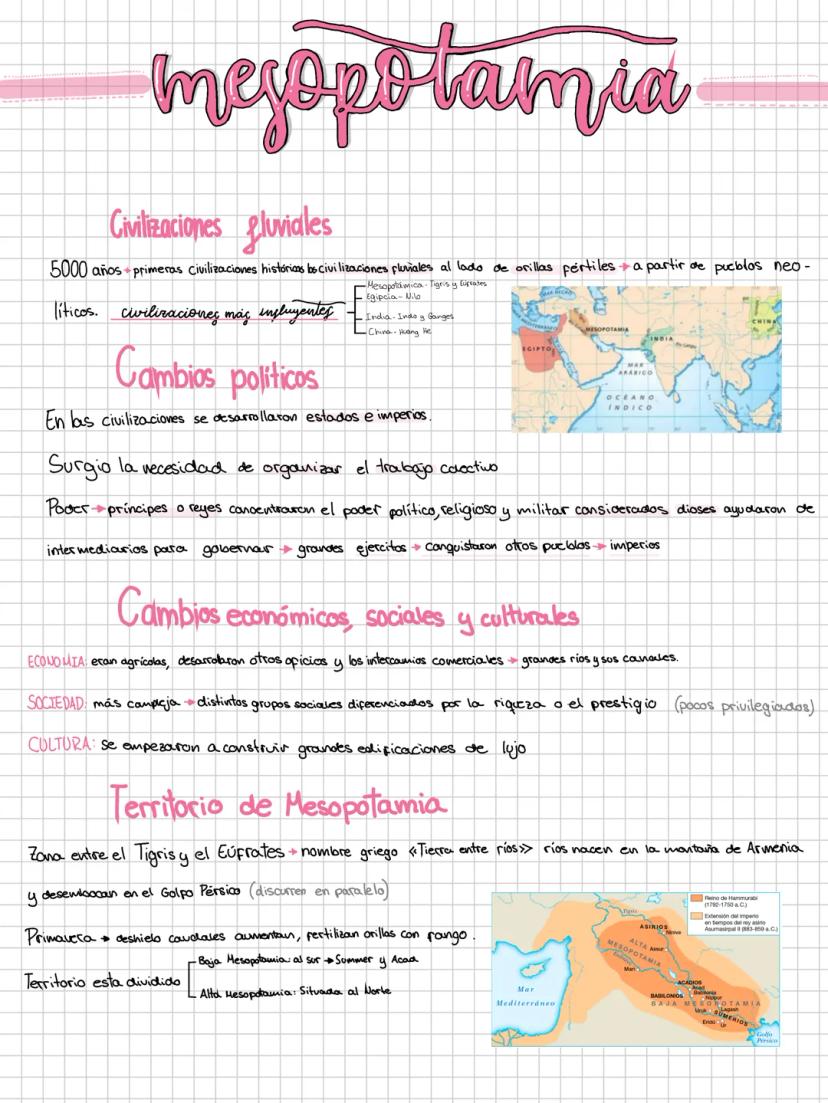 mesopotamia
Civilizaciones fluviales
5000 años → primeras civilizaciones históricas las civilizaciones fluviales al lado de orillas fértiles → a partir de pueblos neo-
líticos. civilizaciones más influyentes
Mesopotámica - Tigris y Eúfrates
Egipcia - Nilo
India - Indo y Ganges
China - Huang He
MAR NEGRO
MEDITERRÁNEO
MESOPOTAMIA
EGIPTO
INDIA
CHINA
MAR
ARÁBIGO
OCÉANO
ÍNDICO
Cambios políticos
En las civilizaciones se desarrollaron estados e imperios.
Surgio la necesidad de organizar el trabajo colectivo
Poder → príncipes o reyes concentraron el poder político, religioso y militar considerados dioses ayudaron de
intermediarios para gobernar → grandes ejercitos → conquistaron otros pueblos → imperios
Cambios económicos, sociales y culturales
ECONOMIA: eran agrícolas, desarrolaron otros oficios y los intercamios comerciales → grandes ríos y sus canales.
SOCIEDAD: más compleja → distintos grupos sociales diferenciados por la riqueza o el prestigio (pocos privilegiados)
CULTURA: se empezaron a construir grandes edificaciones de lujo
Territorio de Mesopotamia
Zona entre el Tigris y el Eúfrates → nombre griego «Tierra entre ríos» ríos nacen en la montaña de Armenia
y desembocan en el Golfo Pérsico (discurren en paralelo)
Primavera → deshielo caudales aumentan, fertilizan orillas con fango.
Territorio esta dividido
Baja Mesopotamia: al sur → Summer y Acad
Alta Mesopotamia: Situada al Norte
Reino de Hammurabi
(1792-1750 a.C.)
Extensión del imperio
en tiempos del rey asirio
Asurnasirpal II (883-859 a.C.)
Tigris
ASIRIOS
Nínive
ALTA
MESOPOTAMIA
Assur
Mari
Mar
Mediterráneo
ACADIOS
Acad
BABILONIOS
Babilonia
Nippur
BAJA MESOPOTAMIA
Uruk
Lagash
SUMERIOS
Eridu
Ur
Golfo
Pérsico